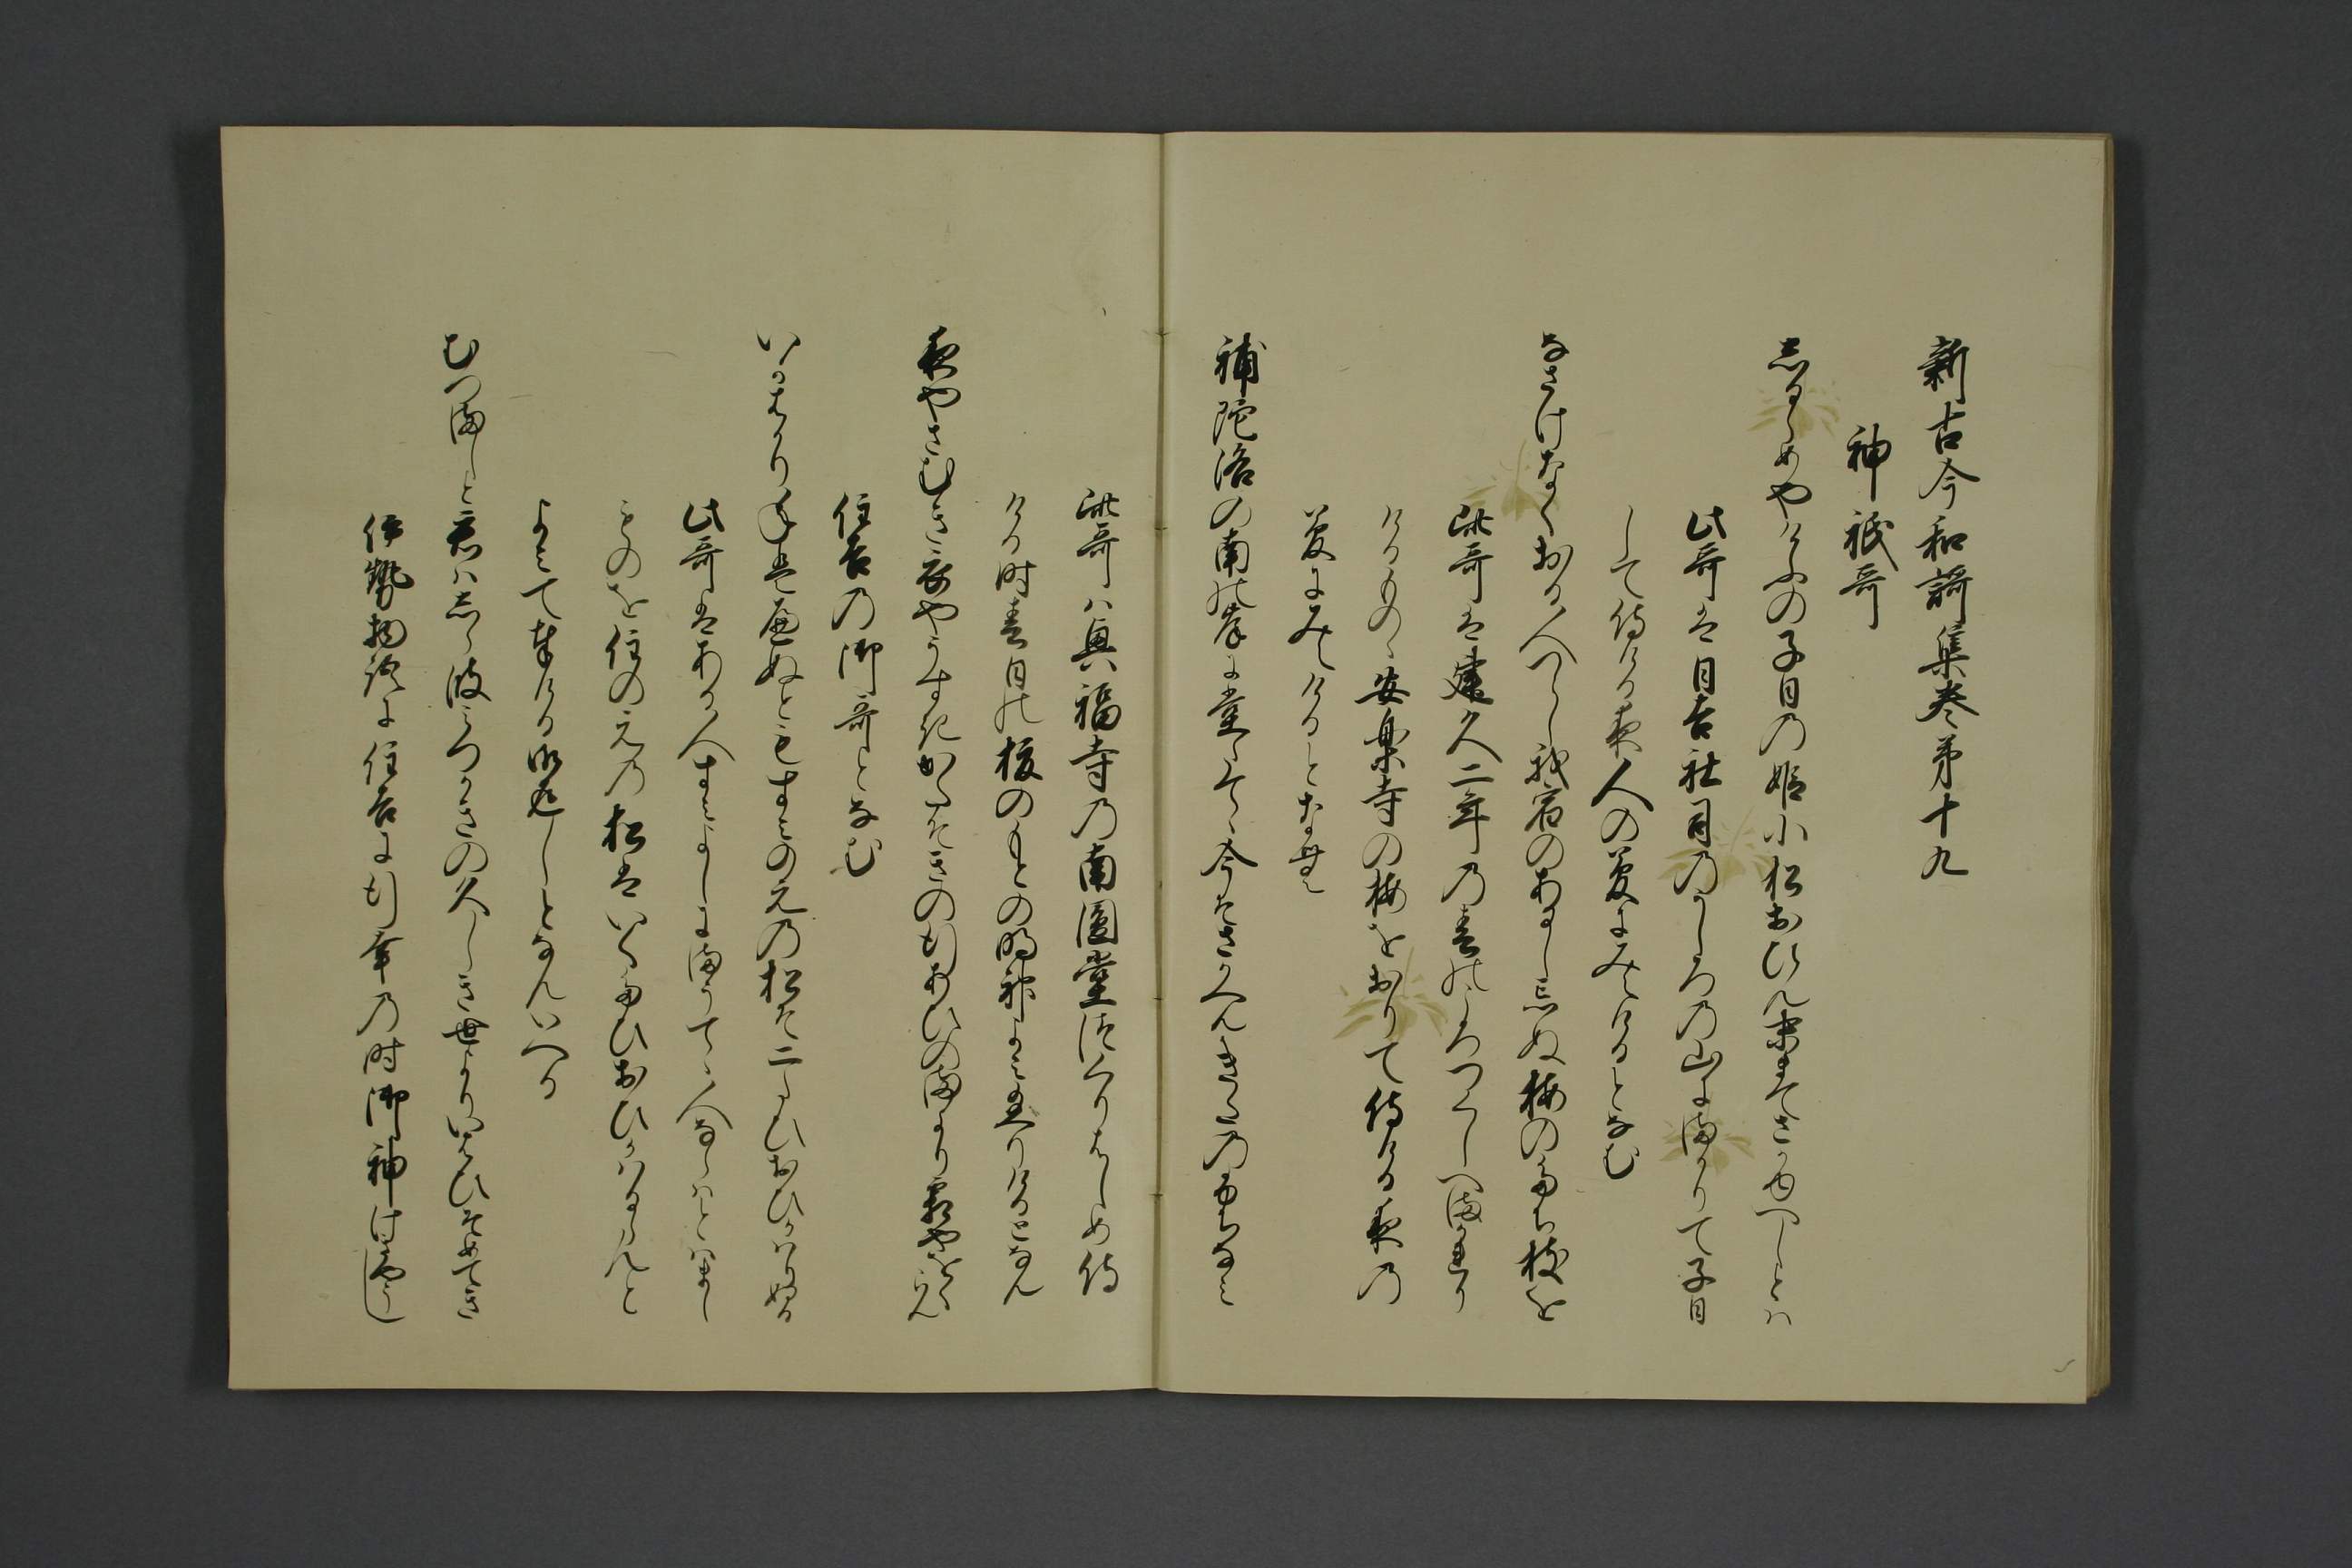 新古今和謌集巻第十九
神祇哥
しるらめやけふの子日の姫小松おひん末まてさかゆへしとは
此哥は日吉社司乃うしろの山にまかりて子日
して侍ける夜人の夢にみえけるとなむ
なさけなくおる人つらし我宿のあるし忘ぬ梅のたち枝を
此哥は建久二年乃春の比つくしへまかれり
けるものゝ安楽寺の梅をおりて侍ける夜乃
夢にみえけるとなむ
補陀洛の南の岸に堂たてゝ今そさかへん北の藤なみ
此哥は興福寺乃南圓堂つくりはしめ侍
ける時春日の榎のもとの明神よみ給へりけるとなん
夜やさむき衣やうすきかたそきの行あひのまより霜やをくらん
住吉乃御哥となむ
いかはかり年は経ぬとも すみの江乃松そ二たひおひかはりぬる
此哥はある人すみよしにまうてゝ人ならはとはまし
ものを住の江乃松はいくたひおひかはるらんと
よみて奉ける御返しとなんいへる
むつましと君はしら波みつかきの久しき世よりいはひそめてき
伊勢物語に住吉に行幸乃時御神けきやうし